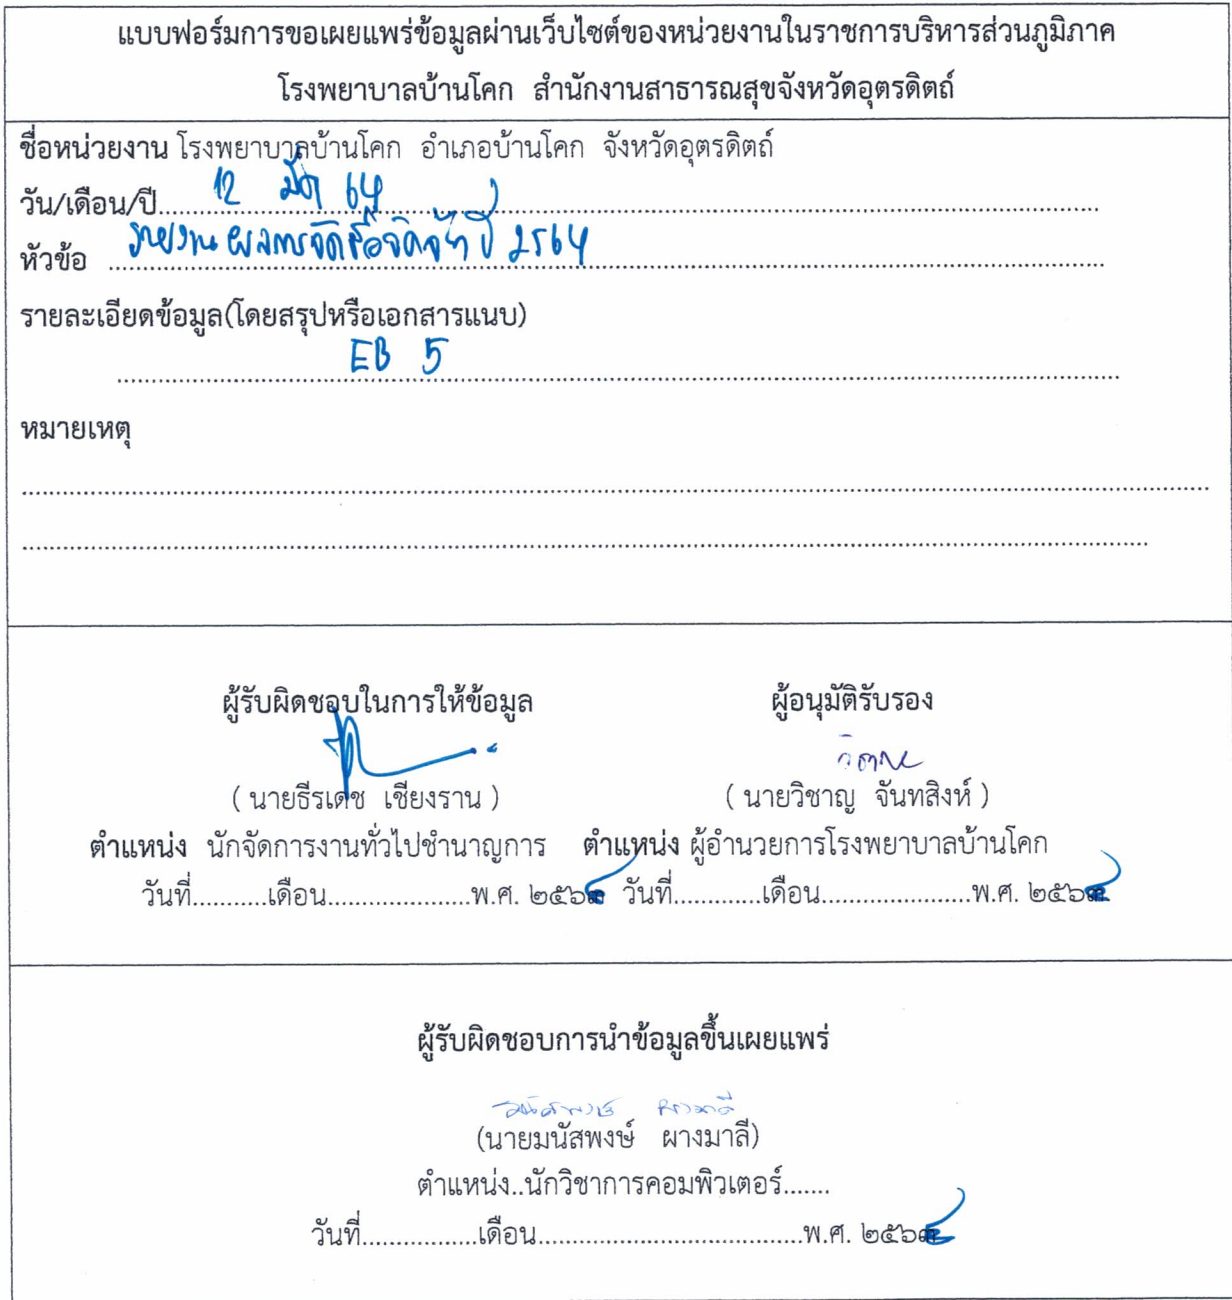 แบบฟอร์มการขอเผยแพร่ข้อมูลผ่านเว็บไซต์ของหน่วยงานในราชการบริหารส่วนภูมิภาค
โรงพยาบาลบ้านโคก สำนักงานสาธารณสุขจังหวัดอุตรดิตถ์
ชื่อหน่วยงาน โรงพยาบาลบ้านโคก อำเภอบ้านโคก จังหวัดอุตรดิตถ์
วัน/เดือน/ปี 12 64
หัวข้อ รายงานผลการจัดซื้อจัดจ้าง ปี 2564
รายละเอียดข้อมูล(โดยสรุปหรือเอกสารแนบ)
EB 5
หมายเหตุ
ผู้รับผิดชอบในการให้ข้อมูล ผู้อนุมัติรับรอง
( นายธีรเดช เชียงราน ) ( นายวิชาญ จันทสิงห์ )
ตำแหน่ง นักจัดการงานทั่วไปชำนาญการ ตำแหน่ง ผู้อำนวยการโรงพยาบาลบ้านโคก
วันที่...........เดือน.....................พ.ศ. ๒๕๖๔ วันที่.............เดือน......................พ.ศ. ๒๕๖๔
ผู้รับผิดชอบการนำข้อมูลขึ้นเผยแพร่
(นายมนัสพงษ์ ผางมาลี)
ตำแหน่ง..นักวิชาการคอมพิวเตอร์.......
วันที่.................เดือน.......................................พ.ศ. ๒๕๖๔